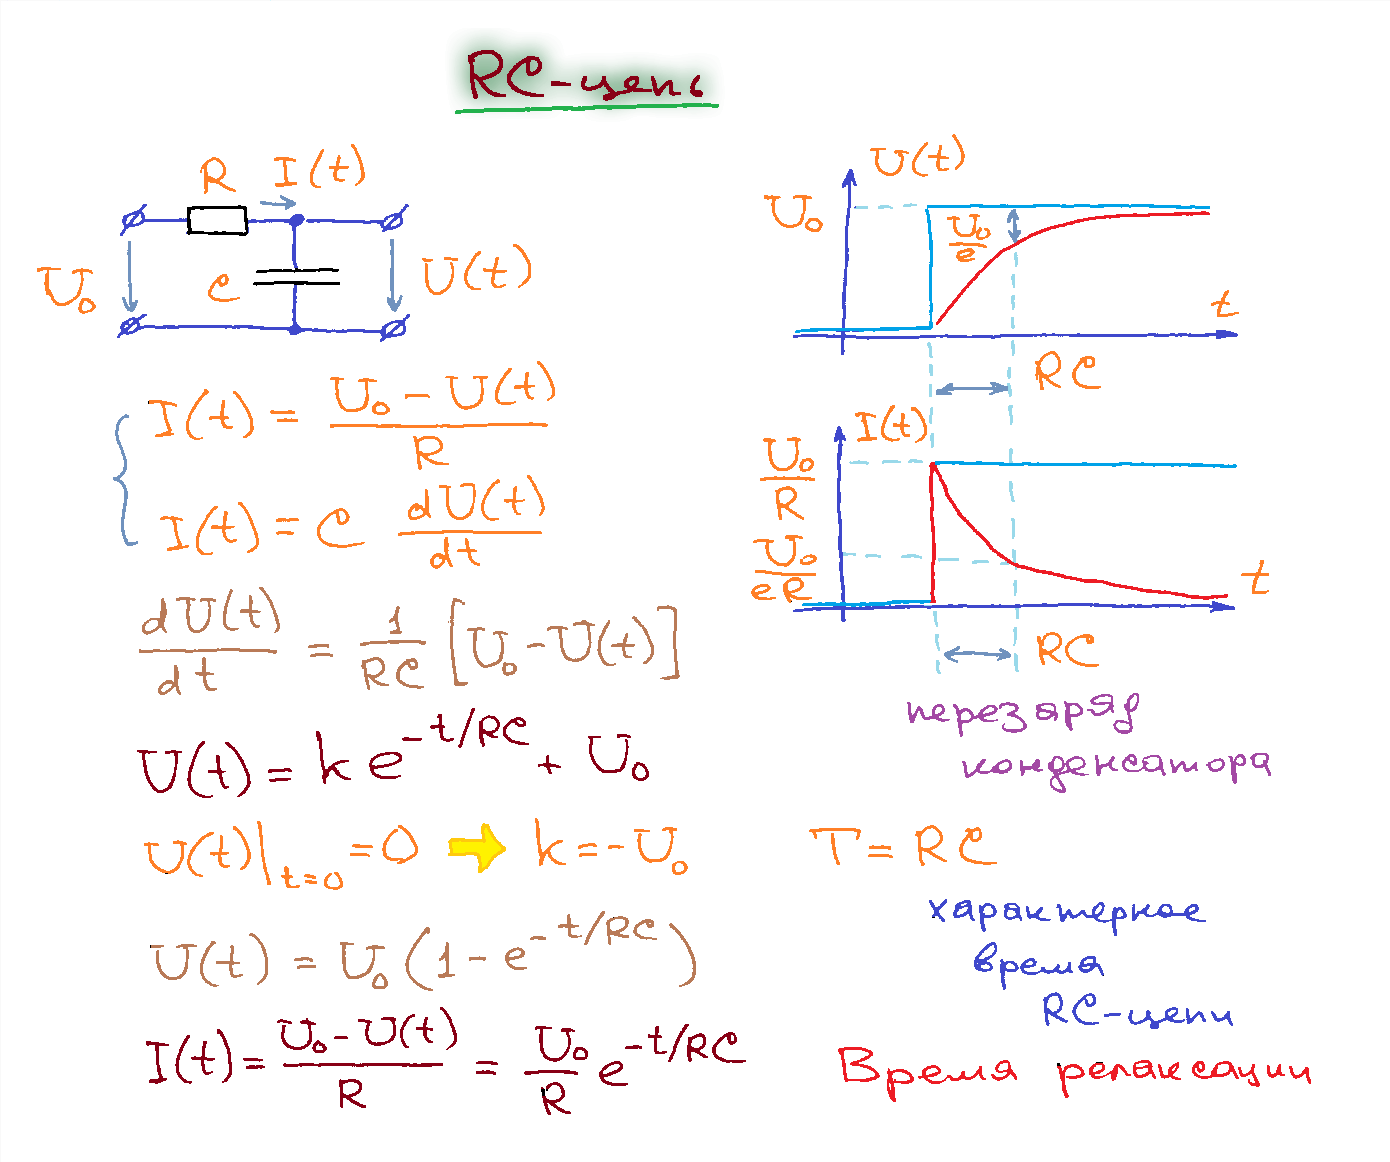 RC-цепь
R I(t)
U₀ C U(t)
I(t) = (U₀ - U(t))/R
I(t) = C dU(t)/dt
dU(t)/dt = 1/RC [U₀ - U(t)]
U(t) = k e^(-t/RC) + U₀
U(t)|ₜ₌₀ = 0 ➡ k = -U₀
U(t) = U₀(1 - e^(-t/RC))
I(t) = (U₀ - U(t))/R = U₀/R e^(-t/RC)
U(t)
U₀
U₀/e
t
RC
I(t)
U₀/R
U₀/eR
t
RC
перезаряд
конденсатора
T = RC
характерное
время
RC-цепи
Время релаксации